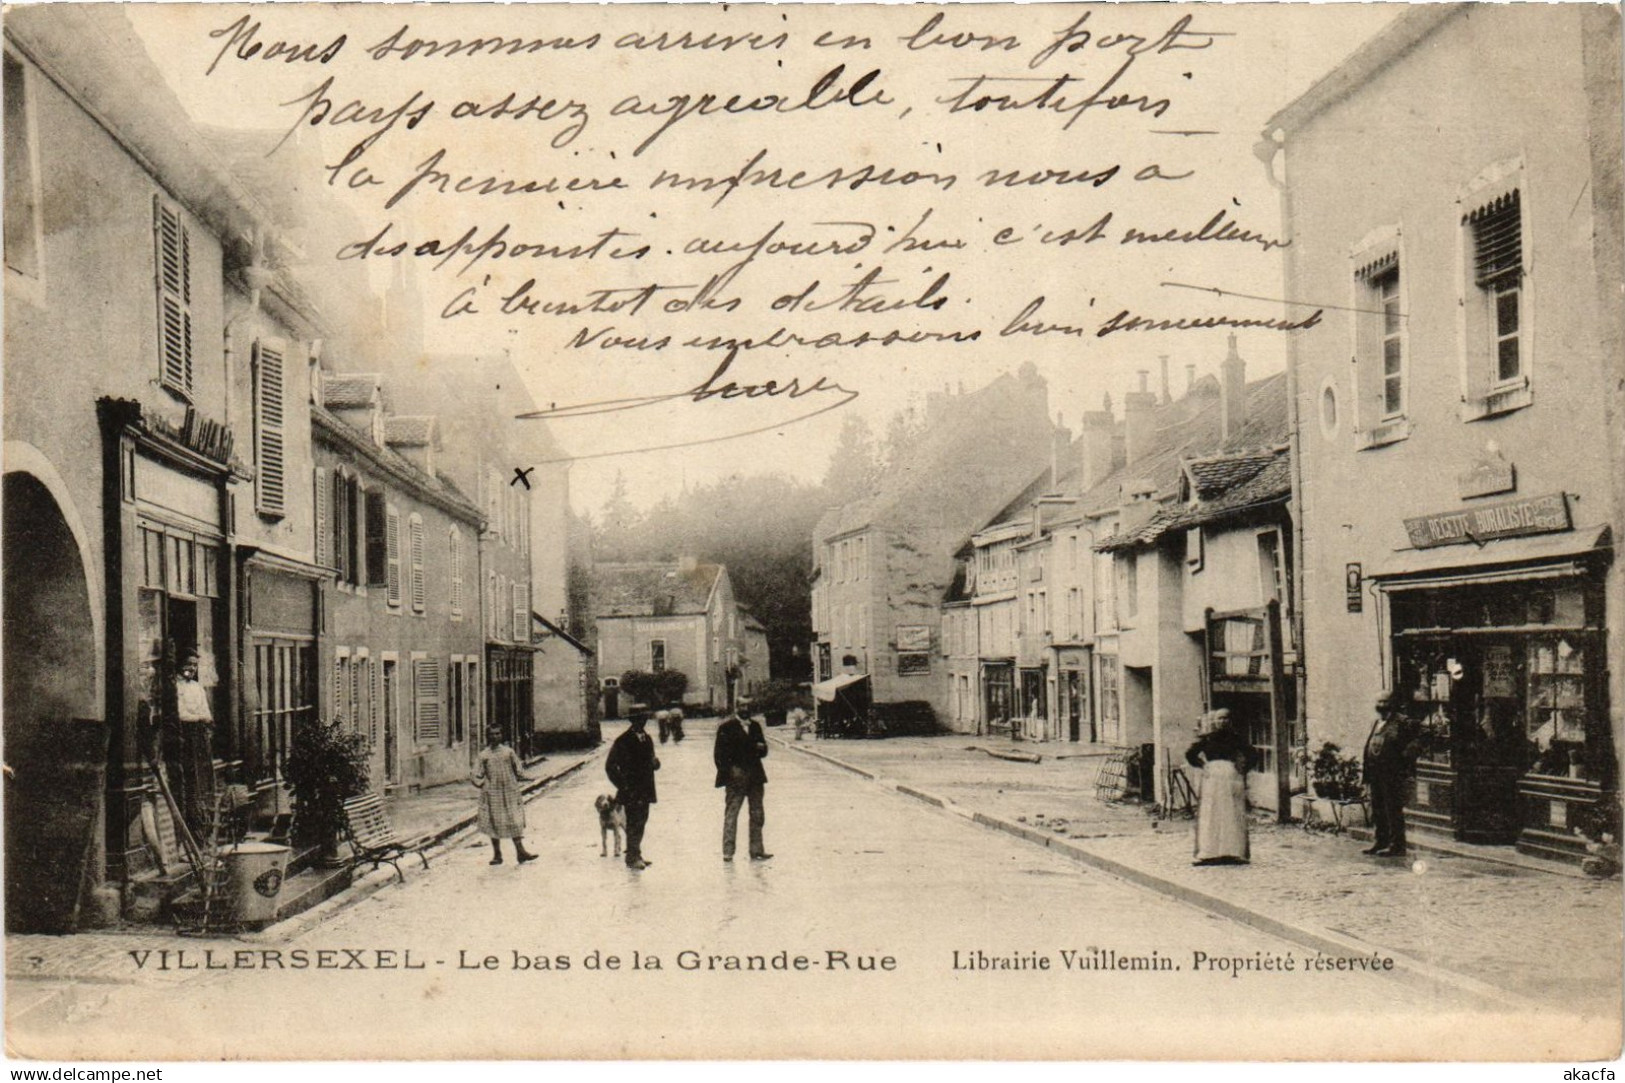 Nous sommes arrivés en bon port
pays assez agréable, toutefois
la première impression nous a
désappointés. aujourd'hui c'est meilleur
à bientôt des détails.
Vous embrassons bien
RECETTE BURALISTE
VILLERSEXEL - Le bas de la Grande-Rue Librairie Vuillemin. Propriété réservée
delcampe.net
akacfa